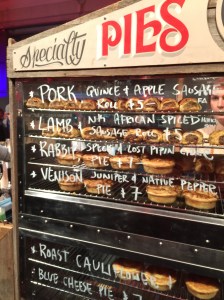 Specialty PIES
* PORK, QUINCE & APPLE SAUSAGE
ROLL $5
* LAMB & NTH AFRICAN SPICED
SAUSAGE ROLL $5
* RABBIT, SPECK & LOST PIPPIN CIDER
PIE $7
* VENISON JUNIPER & NATIVE PEPPER
PIE $7
* ROAST CAULIFLOWER &
BLUE CHEESE PIE $